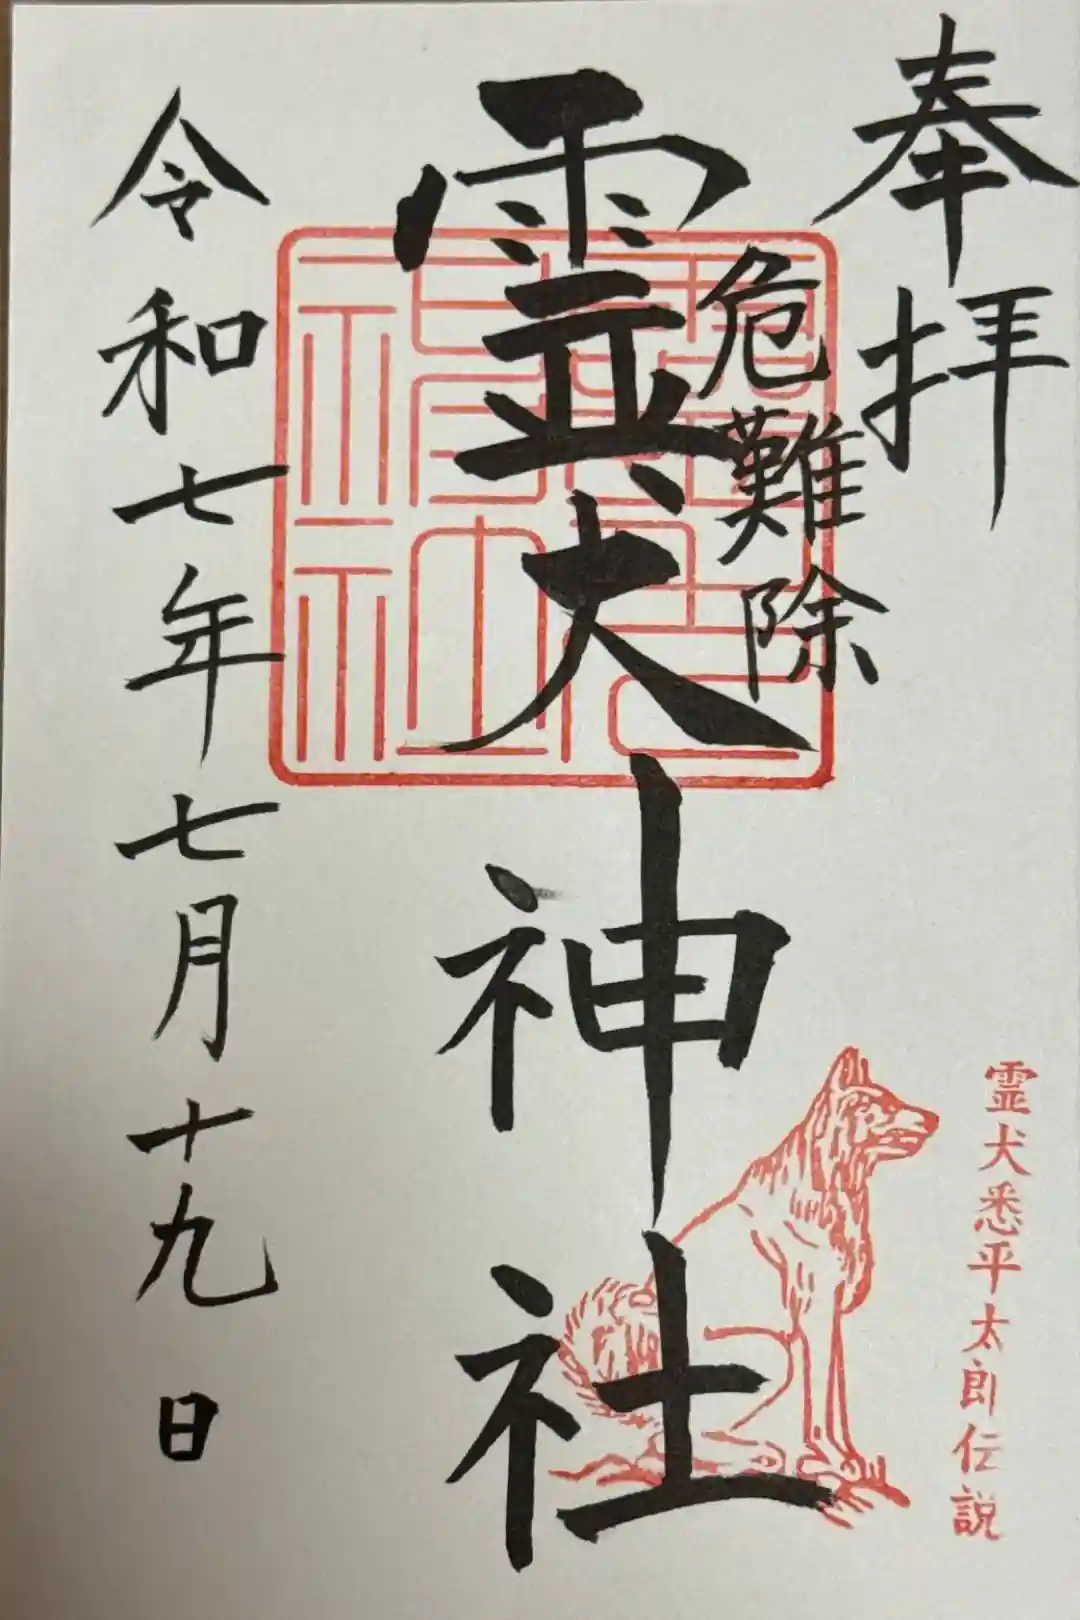 奉拝
危難除
霊犬神社
霊犬神社
令和七年七月十九日
霊犬悉平太郎伝説